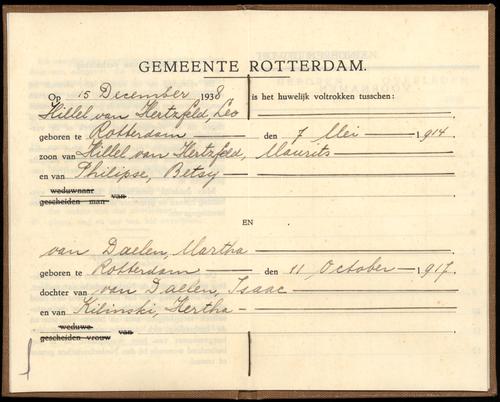 GEMEENTE ROTTERDAM.
Op 15 December 1938 is het huwelijk voltrokken tusschen:
Hillel van Hertzfeld, Leo
geboren te Rotterdam den 7 Mei 1914
zoon van Hillel van Hertzfeld, Maurits
en van Philipse, Betsy
weduwnaar
gescheiden man van
EN
van Daelen, Martha
geboren te Rotterdam den 11 October 1917.
dochter van van Daelen, Isaac
en van Kilinski, Hertha
weduwe
gescheiden vrouw van